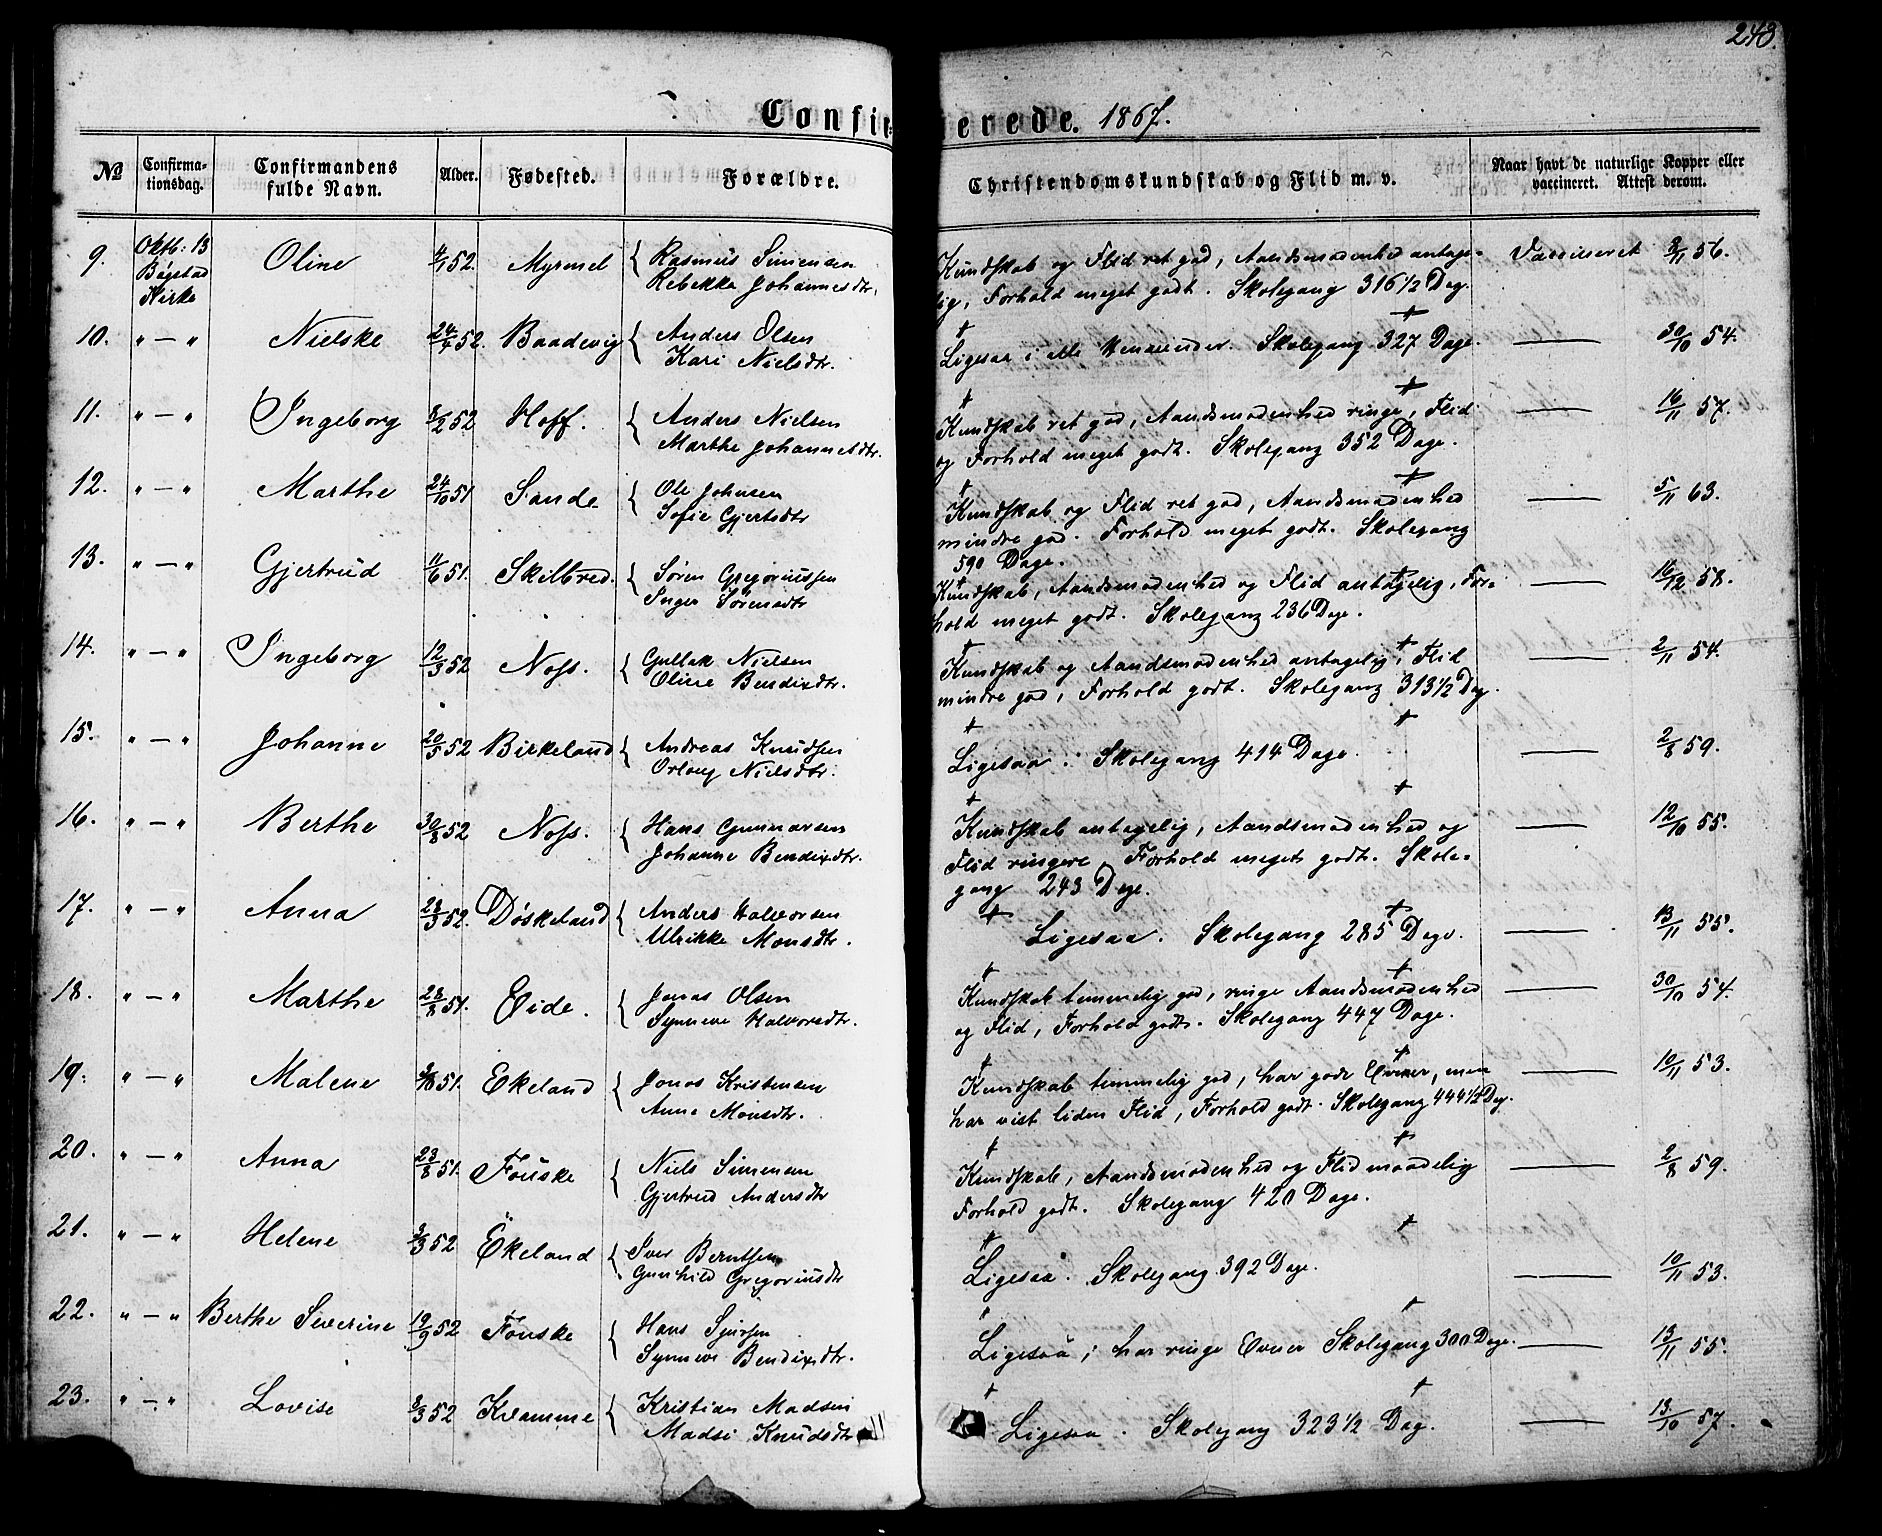 243.
Confirmerede. 1867.
No Confirmationsdag. Confirmandens fulde Navn. Alder. Fødested. Forældre. Christendomskundskab og Flid m. v. Naar havt de naturlige Kopper eller vaccineret. Attest derom.
9. Oktb: 13 Bøgstad Kirke Oline 52. Myrmel { Rasmus Simensen Kundskab og Flid ret god, Aandsmodenhed antage- Vaccineret 56.
Rebekka Johannesdtr. lig, Forhold meget godt. Skolegang 316 1/2 Dag.
10. " — " Nielske 52. Baadevig { Anders Olsen Ligesaa i alle Henseender. Skolegang 327 Dage. — 30/10 54.
Kari Nielsdtr.
11. " — " Ingeborg 52 Hoff. { Anders Nielsen Kundskab ret god, Aandsmodenhed ringe, Flid — 16/11 57.
Marthe Johannesdtr. og Forhold meget godt. Skolegang 352 Dage.
12. " — " Marthe 24/10 51 Sande { Ole Johnsen Kundskab og Flid ret god, Aandsmodenhed — 5/11 63.
Sofie Gjertsdtr mindre god. Forhold meget godt. Skolegang
590 Dage.
13. " — " Gjertrud 11/6 51. Skilbred. { Søren Gregoriussen Kundskab, Aandsmodenhed og Flid antagelig, For- — 16/12 58.
Inger Sørensdtr hold meget godt. Skolegang 236 Dage.
14. " — " Ingeborg 12/3 52 Noss. { Gullak Nielsen Kundskab og Aandsmodenhed antagelig, Flid — 2/11 54.
Oline Bendixdtr. mindre god, Forhold godt. Skolegang 313 1/2 Dag.
15. " — " Johanne 20/5 52 Birkeland { Andreas Knudsen Ligesaa. Skolegang 414 Dage. — 2/8 59.
Nielsdtr.
16. " — " Berthe 30/8 52 Noss. { Hans Gunnarsen Kundskab antagelig, Aandsmodenhed og — 12/10 55.
Johanne Bendixdtr. Flid ringere, Forhold meget godt. Skole-
gang 243 Dage.
17. " — " Anna 23/3 52. Døskeland { Anders Halvorsen Ligesaa. Skolegang 285 Dage. — 13/11 55.
Ulrikke Monsdtr.
18. " — " Marthe 28/8 51. Eide. { Jonas Olsen Kundskab temmelig god, ringe Aandsmodenhed — 30/10 54.
Synneve Halvorsdtr. og Flid, Forhold godt. Skolegang 447 Dage.
19. " — " Malene 51. Ekeland { Jonas Kristensen Kundskab temmelig god, har gode Evner, men — 10/11 53.
Anne Monsdtr. har vist liden Flid, Forhold godt. Skolegang 444 1/2 Dag.
20. " — " Anna 23/8 51. Fouske { Niels Simensen Kundskab, Aandsmodenhed og Flid maadelig — 2/8 59.
Gjertrud Andersdtr Forhold godt. Skolegang 420 Dage.
21. " — " Helene 52 Ekeland { Iver Berntsen Ligesaa. Skolegang 392 Dage. — 10/11 53.
Gunhild Gregoriusdtr
22. " — " Berthe Severine 19/9 52 Fouske { Hans Sjursen Ligesaa, har ringe Evner Skolegang 300 Dage. — 13/11 55.
Synneve Bendixdtr.
23. " — " Lovise 52 Kvamme { Kristian Madsen Ligesaa. Skolegang 323 1/2 Dag. — 13/10 57.
Madsi Knudsdtr